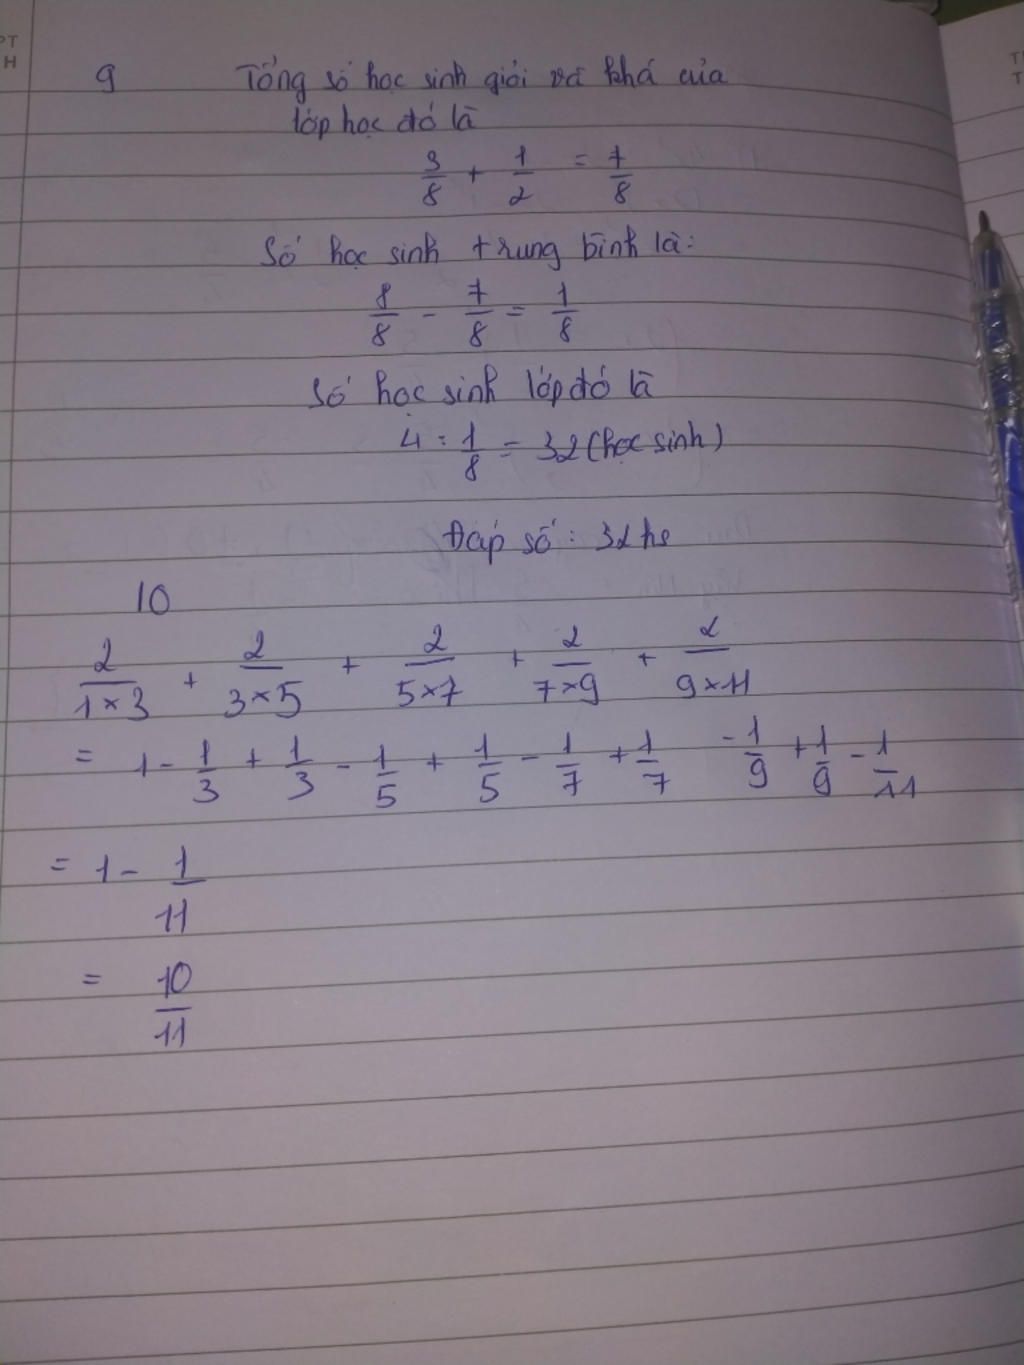 PT
H
9 Tổng số học sinh giỏi và khá của
lớp học đó là
3/8 + 1/2 = 7/8
Số học sinh trung bình là:
8/8 - 7/8 = 1/8
Số học sinh lớp đó là
4 : 1/8 = 32 (học sinh)
Đáp số : 32 hs
10
2/1×3 + 2/3×5 + 2/5×7 + 2/7×9 + 2/9×11
= 1 - 1/3 + 1/3 - 1/5 + 1/5 - 1/7 + 1/7 - 1/9 + 1/9 - 1/11
= 1 - 1/11
= 10/11